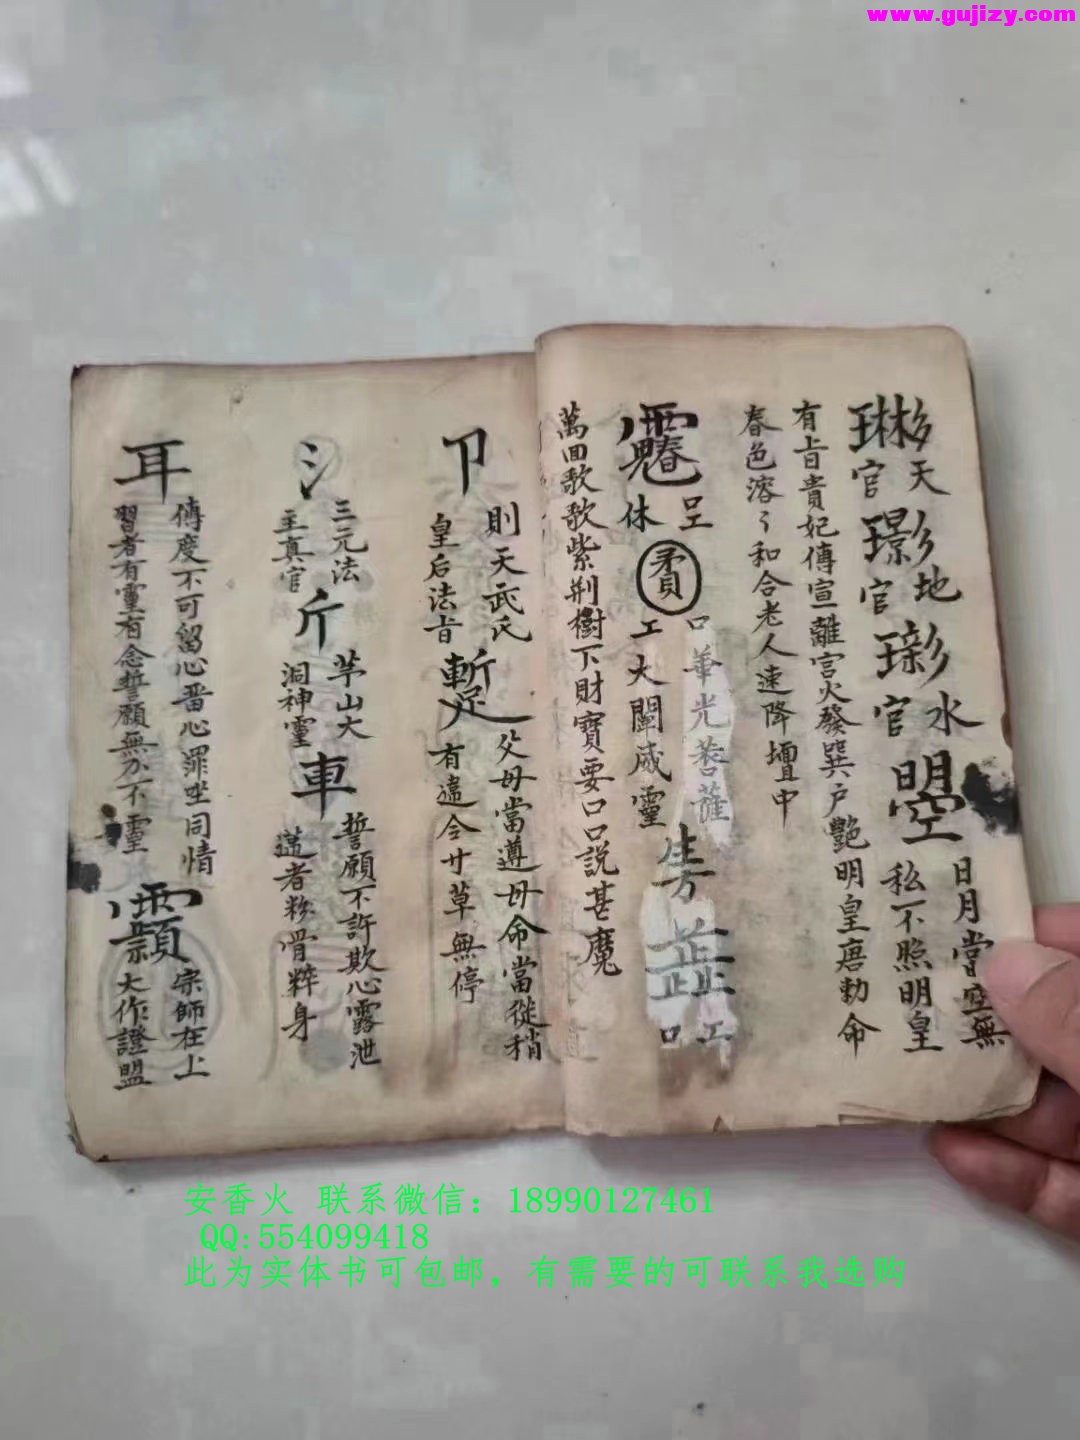 www.gujizy.com
天
官
地
官
水
官
日月當空無
私不照明皇
有旨貴妃傳宣離宮火發巽户艷明皇唐勅命
春色溶〻和合老人速降壇中
休
賮
口華光菩薩
工大闡威靈
口 工
萬回歌歌紫荆樹下財寶要口口説甚魔
卩
則天武氏
皇后法旨
父母當遵母命當從稍
有違令廿草無停
氵
三元法
主真官
斤
茅山大
洞神靈
車
誓願不許欺心露泄
違者粉骨粹身
耳
傳度不可留心嗇心罪坐同情
習者有靈有念誓願無不靈
宗師在上
大作證盟
安香火 联系微信：18990127461
QQ:554099418
此为实体书可包邮，有需要的可联系我选购